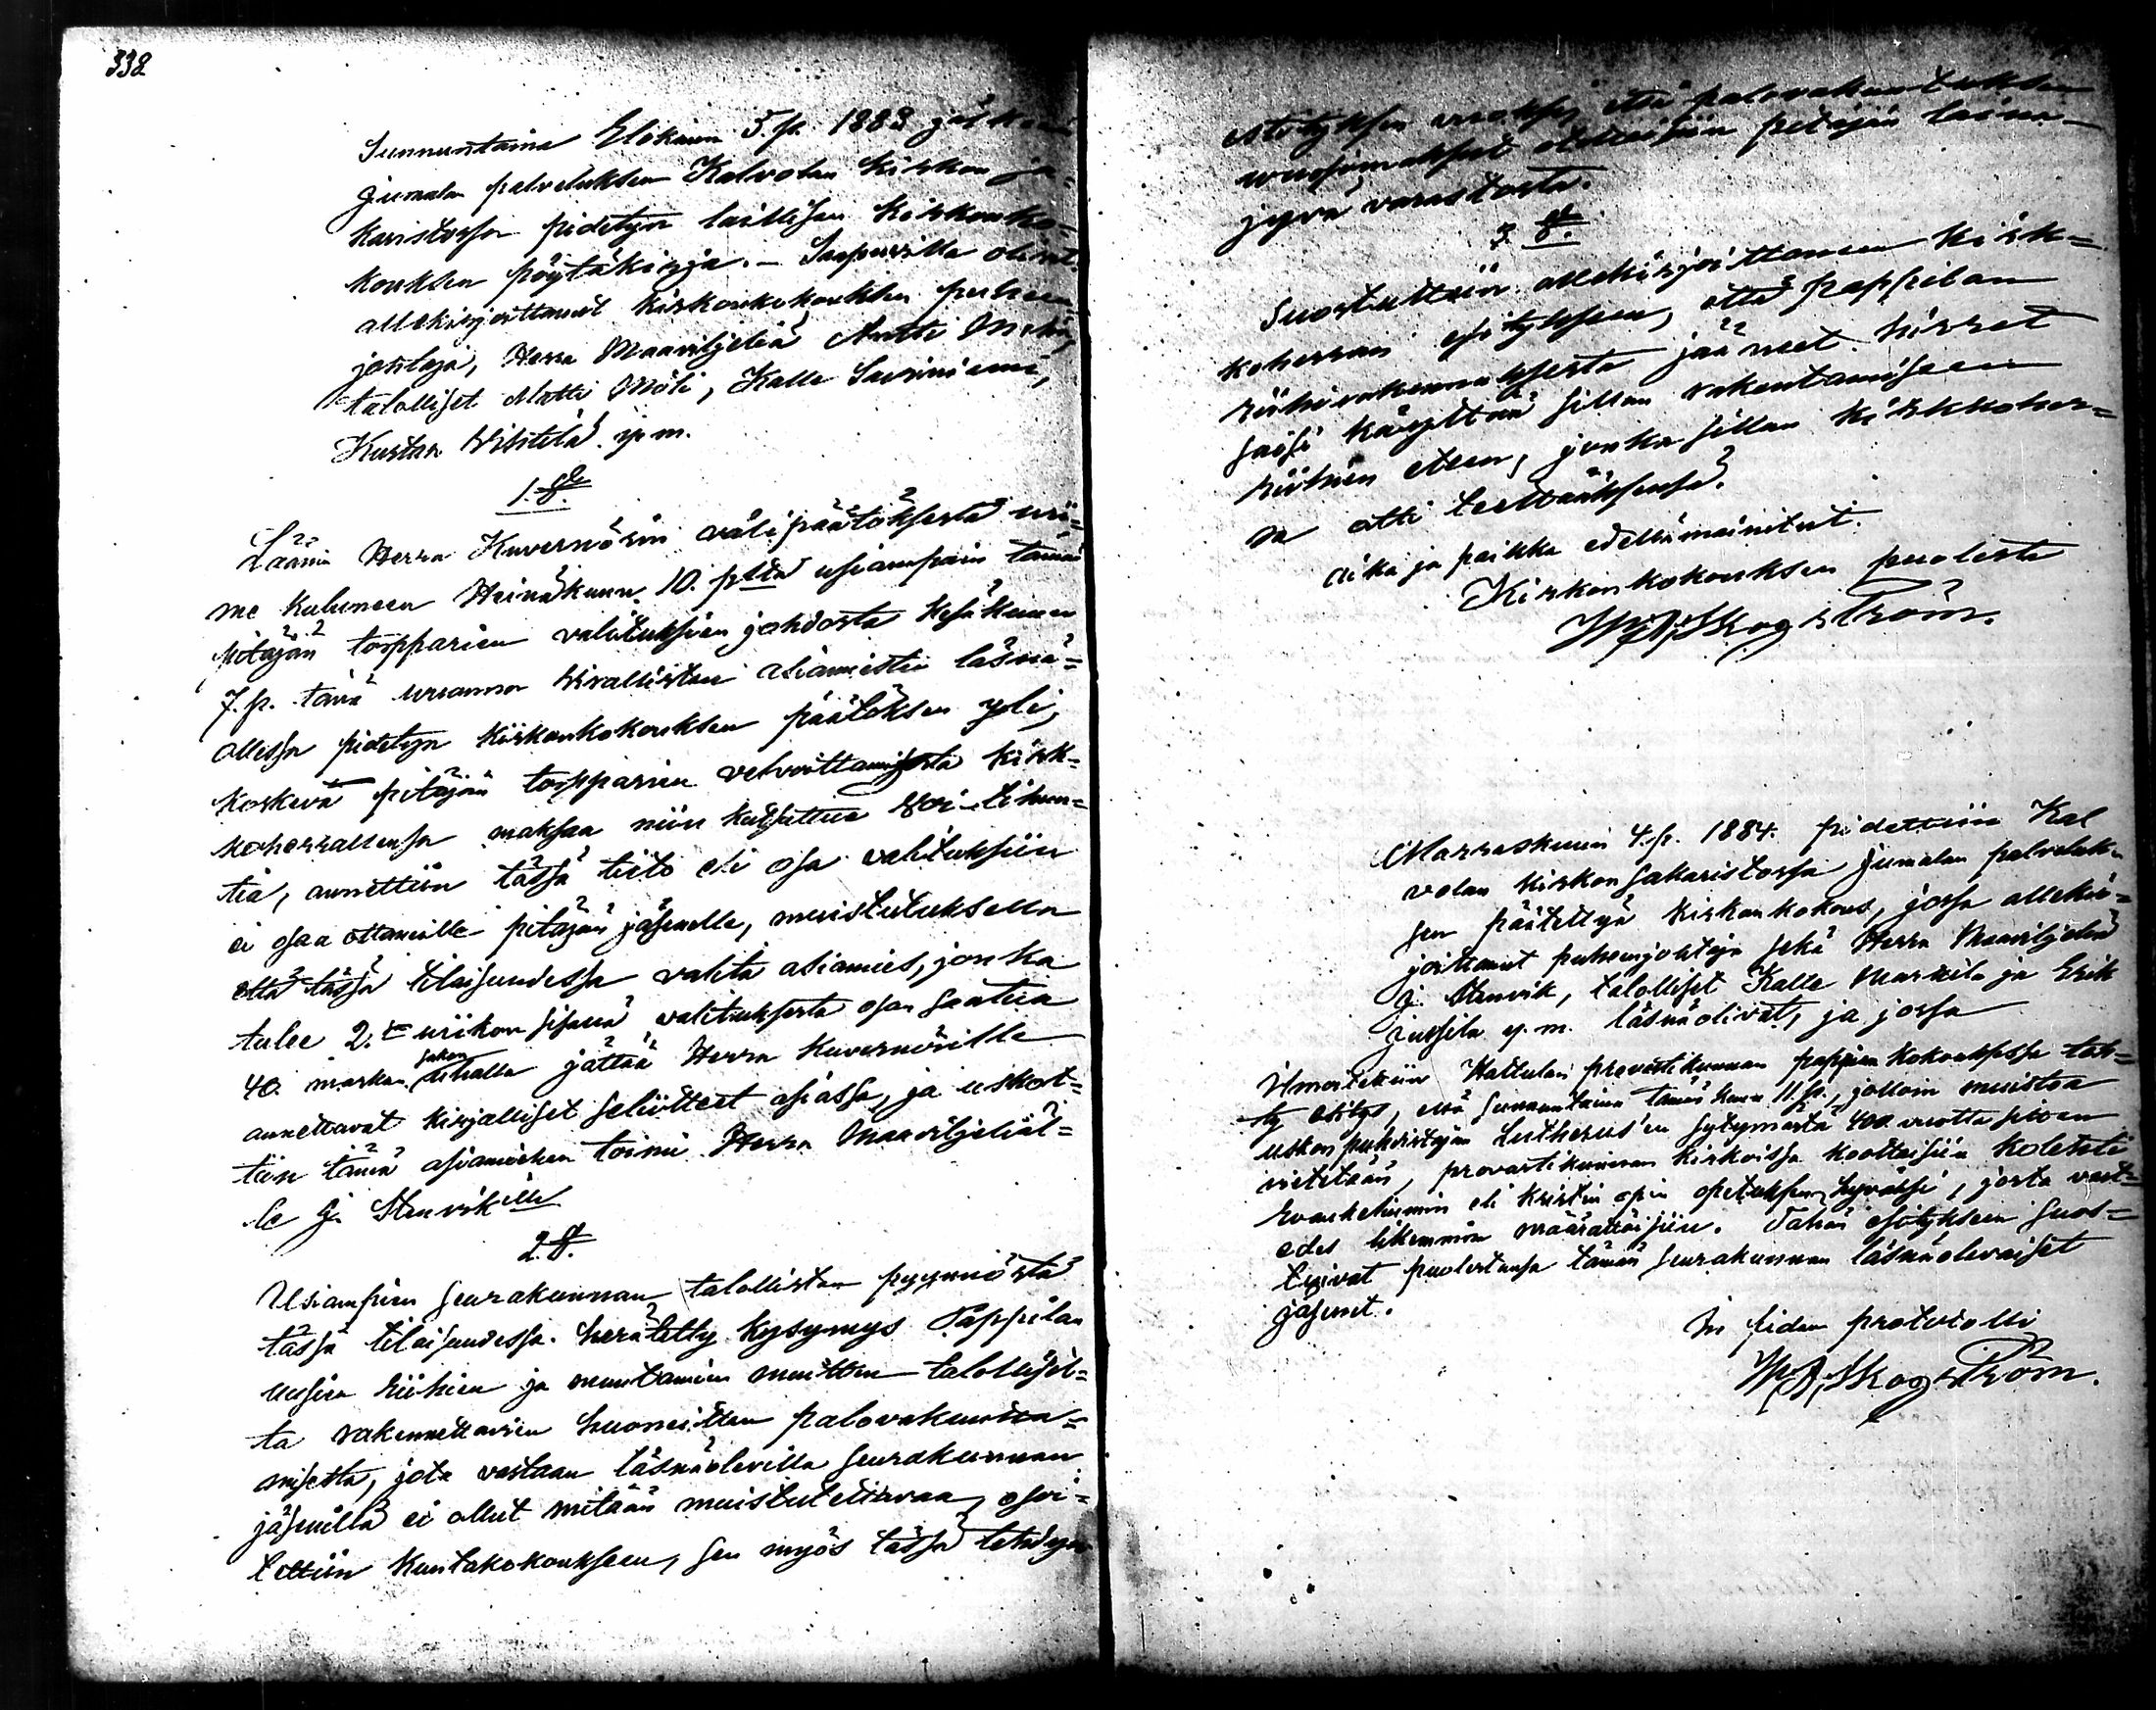 332
Sunnuntaina Elokuun 5. p. 1883 jälkeen
Jumalan palveluksen Kalvolan kirkon sa=
karistossa pidetyn laillisen kirkonko=
kouksen pöytäkirja. – Saapuvilla olivat
allekirjoittanut kirkonkokouksen puheen
johtaja, Herra Maaviljeliä Antti
talolliset Matti Möli, Kalle Saviniemi,
Kustaa Vihtilä y. m.
1. §.
Läänin Herra Kuvernörin välipäätöksestä vii=
me kuluneen Heinäkuun 10. pltä usiampain tämän
pitäjän torpparien valituksien johdosta Kesäkuun
7. p. tänä vuonna kivallisten asiamiesten läsnä=
ollessa pidetyn kirkonkokouksen päätöksen yli,
koskeva pitäjän torpparien velvoittamisesta kirk=
koherrallensa maksaa niin kutsuttua voi-tihun=
tia, annettiin tässä tieto eli osa valituksiin
ei osaa ottaneille pitäjän jäsenelle, muistutuksella
että tässä tilaisuudessa valita asiamies, jonka
tulee 2. viikon sisässä valituksesta osan saatua
40. markan sakon uhalla jättää Herra Kuvernörille
annettavat kirjalliset selitteet asiassa, ja uskot=
tiin tämä asiamiehen toimi Herra Maaviljeliäl=
le G. Stenvikille
2. §.
Usiampien seurakunnan talollisten pyynnöstä
tässä tilaisuudessa herätetty kysymys Pappilan
uusien riihien ja muutamien muitten talollisil=
ta rakennettavien huoneitten palovakuutta=
misesta, jota vastaan läsnäolevilla seurakunnan
jäsenillä ei ollut mitään muistutettavaa, osoi=
tettiin Kuntakokoukseen, sen myös tässä tehdyn
esityksen vuoksi, että palovakuutuksen
vuosimaksut otettaisiin pitäjän laina-
jyvä varastosta.
3. §.
Suostuttiin allekirjoittaneen kirk=
koherran esitykseen, että pappilan
riihirakennuksesta jääneet hirret
saisi käyttää sillan rakentamiseen
riihien eteen, jonka sillan kirkkoher=
ra otti teettääksensä.
Aika ja paikka edellämainitut.
Kirkonkokouksen puolesta
W. A. Skogström.
Marraskuun 4. p. 1884. pidettiin Kal
volan kirkon sakaristossa Jumalan palveluk=
sen päätettyä kirkonkokous, jossa allekir=
joittanut puheenjohtaja sekä Herra Maaviljeliä
G. Stenvik, talolliset Kalle Markila ja Erik
Jussila y. m. läsnäolivat, ja jossa
Ilmoitettiin Hattulan provastikunnan pappien kokouksessa teh=
ty esitys, että sunnuntaina tämän kuun 11. p., jolloin muistoa
uskon puhdistajan Lutherus'en syntymästä 400. vuotta sitten
vietetään, provastikunnan kirkoissa koottaisiin kolehti
Evankeliumin eli kristin opin opetuksen hyväksi, josta vast=
edes likemmin määrättäisiin. Tähän esitykseen suos=
tuivat puolestansa tämän seurakunnan läsnäolevaiset
jäsenet.
In fidem protocolli
W. A. Skogström.